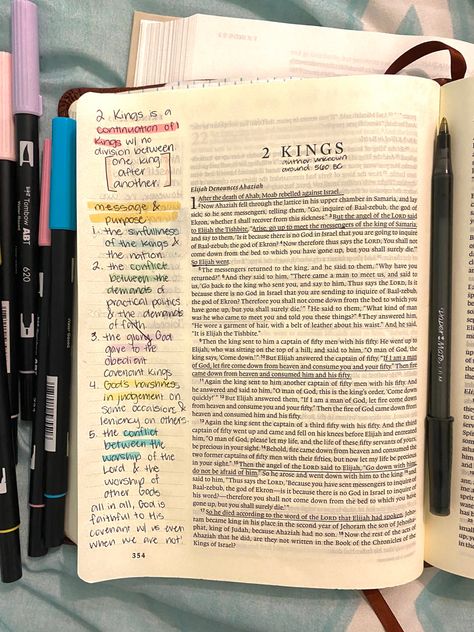 2 Kings is a
continuation of 1
kings w/ no
division between
one king
after
another.
message &
purpose
1. the sinfulness
of the kings &
the nation
2. the conflict
between the
demands of
practical politics
& the demands
of faith
3. the glory God
gave to the
obedient
covenant kings
4. God's harshness
in judgement on
some occasions &
leniency on others
5. the conflict
between the
worship of the
Lord & the
worship of
other Gods
all in all, God is
faithful to His
covenant w/ us even
when we are not!
354
2 KINGS
author: unknown
around 560 BC
Elijah Denounces Ahaziah
1 After the death of Ahab, Moab rebelled against Israel.
2 Now Ahaziah fell through the lattice in his upper chamber in Samaria, and lay
sick; so he sent messengers, telling them, "Go, inquire of Baal-zebub, the god of
Ekron, whether I shall recover from this sickness." 3 But the angel of the LORD said
to Elijah the Tishbite, "Arise, go up to meet the messengers of the king of Samaria,
and say to them, 'Is it because there is no God in Israel that you are going to inquire
of Baal-zebub, the god of Ekron? 4 Now therefore thus says the LORD, You shall not
come down from the bed to which you have gone up, but you shall surely die.'"
So Elijah went.
5 The messengers returned to the king, and he said to them, "Why have you
returned?" 6 And they said to him, "There came a man to meet us, and said to
us, 'Go back to the king who sent you, and say to him, Thus says the LORD, Is it
because there is no God in Israel that you are sending to inquire of Baal-zebub,
the god of Ekron? Therefore you shall not come down from the bed to which you
have gone up, but you shall surely die.'" 7 He said to them, "What kind of man
was he who came to meet you and told you these things?" 8 They answered him,
"He wore a garment of hair, with a belt of leather about his waist." And he said,
"It is Elijah the Tishbite."
9 Then the king sent to him a captain of fifty men with his fifty. He went up to
Elijah, who was sitting on the top of a hill, and said to him, "O man of God, the
king says, 'Come down.'" 10 But Elijah answered the captain of fifty, "If I am a man
of God, let fire come down from heaven and consume you and your fifty." Then fire
came down from heaven and consumed him and his fifty.
11 Again the king sent to him another captain of fifty men with his fifty. And he
answered and said to him, "O man of God, this is the king's order, 'Come down
quickly!'" 12 But Elijah answered them, "If I am a man of God, let fire come down
from heaven and consume you and your fifty." Then the fire of God came down
from heaven and consumed him and his fifty.
13 Again the king sent the captain of a third fifty with his fifty. And the third
captain of fifty went up and came and fell on his knees before Elijah and entreated
him, "O man of God, please let my life, and the life of these fifty servants of yours,
be precious in your sight. 14 Behold, fire came down from heaven and consumed the
two former captains of fifty men with their fifties, but now let my life be precious
in your sight." 15 Then the angel of the LORD said to Elijah, "Go down with him;
do not be afraid of him." So he arose and went down with him to the king 16 and
said to him, "Thus says the LORD, 'Because you have sent messengers to inquire of
Baal-zebub, the god of Ekron—is it because there is no God in Israel to inquire of
his word?—therefore you shall not come down from the bed to which you have
gone up, but you shall surely die.'"
17 So he died according to the word of the LORD that Elijah had spoken. Jehoram
became king in his place in the second year of Jehoram the son of Jehoshaphat,
king of Judah, because Ahaziah had no son. 18 Now the rest of the acts of
Ahaziah that he did, are they not written in the Book of the Chronicles of the
Kings of Israel?
Tombow ABT
620